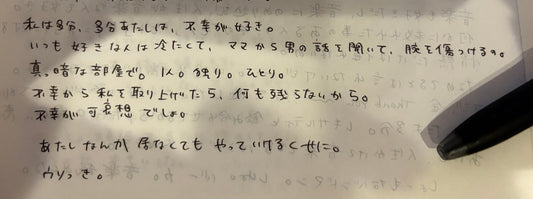 私は多分、多分あたしは、不幸が好き。
いつも好きな人は冷たくて、ママから男の話を聞いて、腕を傷つけるの。
真っ暗な部屋で。1人。独り。ひとり。
不幸から私を取り上げたら、何も残らないから。
不幸が可哀想でしょ。
あたしなんか居なくてもやっていけるくせに。
ウソつき。